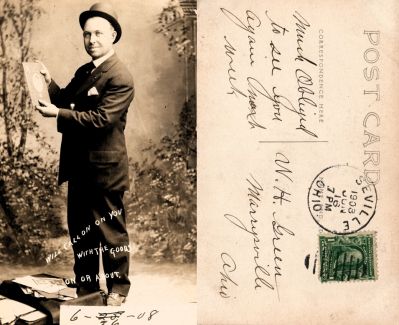 WILL CALL ON YOU
WITH THE GOODS
ON OR ABOUT
6-16-08
POST CARD
CORRESPONDENCE HERE
Much Obliged
to see you
again next
week
W. H. Green
Marysville
Ohio
SEVILLE
JUN
16
7 PM
1908
OHIO